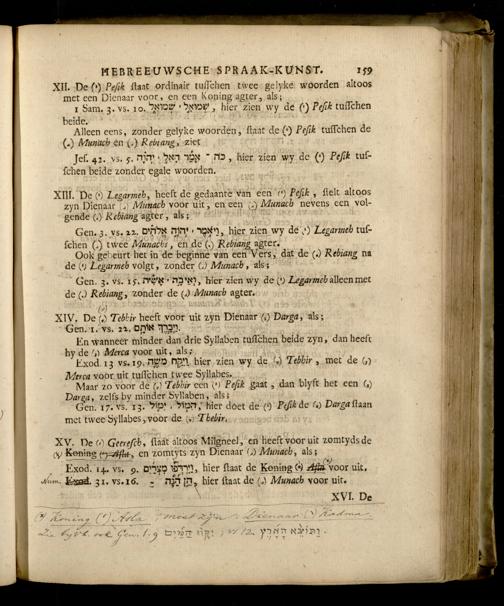 HEBREEUWSCHE SPRAAK-KUNST. 159
XII. De (׀) Pesik staat ordinair tusschen twee gelyke woorden altoos
met een Dienaar voor, en een Koning agter, als;
1 Sam. 3. vs. 10. שְׁמוּאֵל ׀ שְׁמוּאֵל, hier zien wy de (׀) Pesik tusschen
beide.
Alleen eens, zonder gelyke woorden, staat de (׀) Pesik tusschen de
(֣) Munach en (֗) Rebiang, ziet
Jes. 42. vs. 5. כֹּה־אָמַר הָאֵל ׀ יְהוָה, hier zien wy de (׀) Pesik tus-
schen beide zonder egale woorden.
XIII. De (׀) Legarmeh, heeft de gedaante van een (׀) Pesik, stelt altoos
zyn Dienaar (֣) Munach voor uit, en een (֣) Munach nevens een vol-
gende (֗) Rebiang agter, als;
Gen. 3. vs. 22. וַיֹּאמֶר ׀ יְהוָה אֱלֹהִים, hier zien wy de (׀) Legarmeh tus-
schen (֣) twee Munachs, en de (֗) Rebiang agter.
Ook gebeurt het in de beginne van een Vers, dat de (֗) Rebiang na
de (׀) Legarmeh volgt, zonder (֣) Munach, als;
Gen. 3. vs. 15. וְאֵיבָה ׀ אָשִׁית, hier zien wy de (׀) Legarmeh alleen met
de (֗) Rebiang, zonder de (֣) Munach agter.
XIV. De (֛) Tebhir heeft voor uit zyn Dienaar (֧) Darga, als;
Gen. 1. vs. 22. וַיְבָרֶךְ אֹתָם.
En wanneer minder dan drie Syllaben tusschen beide zyn, dan heeft
hy de (֥) Merca voor uit, als;
Exod 13 vs. 19. וַיִּקַּח מֹשֶׁה, hier zien wy de (֛) Tebhir, met de (֥)
Merca voor uit tusschen twee Syllabes.
Maar zo voor de (֛) Tebhir een (׀) Pesik gaat, dan blyft het een (֧)
Darga, zelfs by minder Syllaben, als;
Gen. 17. vs. 13. הִמּוֹל ׀ יִמּוֹל, hier doet de (׀) Pesik de (֧) Darga staan
met twee Syllabes, voor de (֛) Thebir.
XV. De (֜) Geeresch, staat altoos Milgneel, en heeft voor uit zomtyds de
Koning Asla, en zomtyts zyn Dienaar (֣) Munach, als;
Exod. 14. vs. 9. וַיִּרְדְּפוּ מִצְרַיִם, hier staat de Koning Asla voor uit.
Num. Exod. 31. vs. 16. הֵן הֵנָּה, hier staat de (֣) Munach voor uit.
XVI. De
Koning Asla moet zyn Dienaar Kadma.
Zie byvb. ook Gen. 1. 9 יִקָּווּ הַמַּיִם; vs 12. וַתּוֹצֵא הָאָרֶץ.